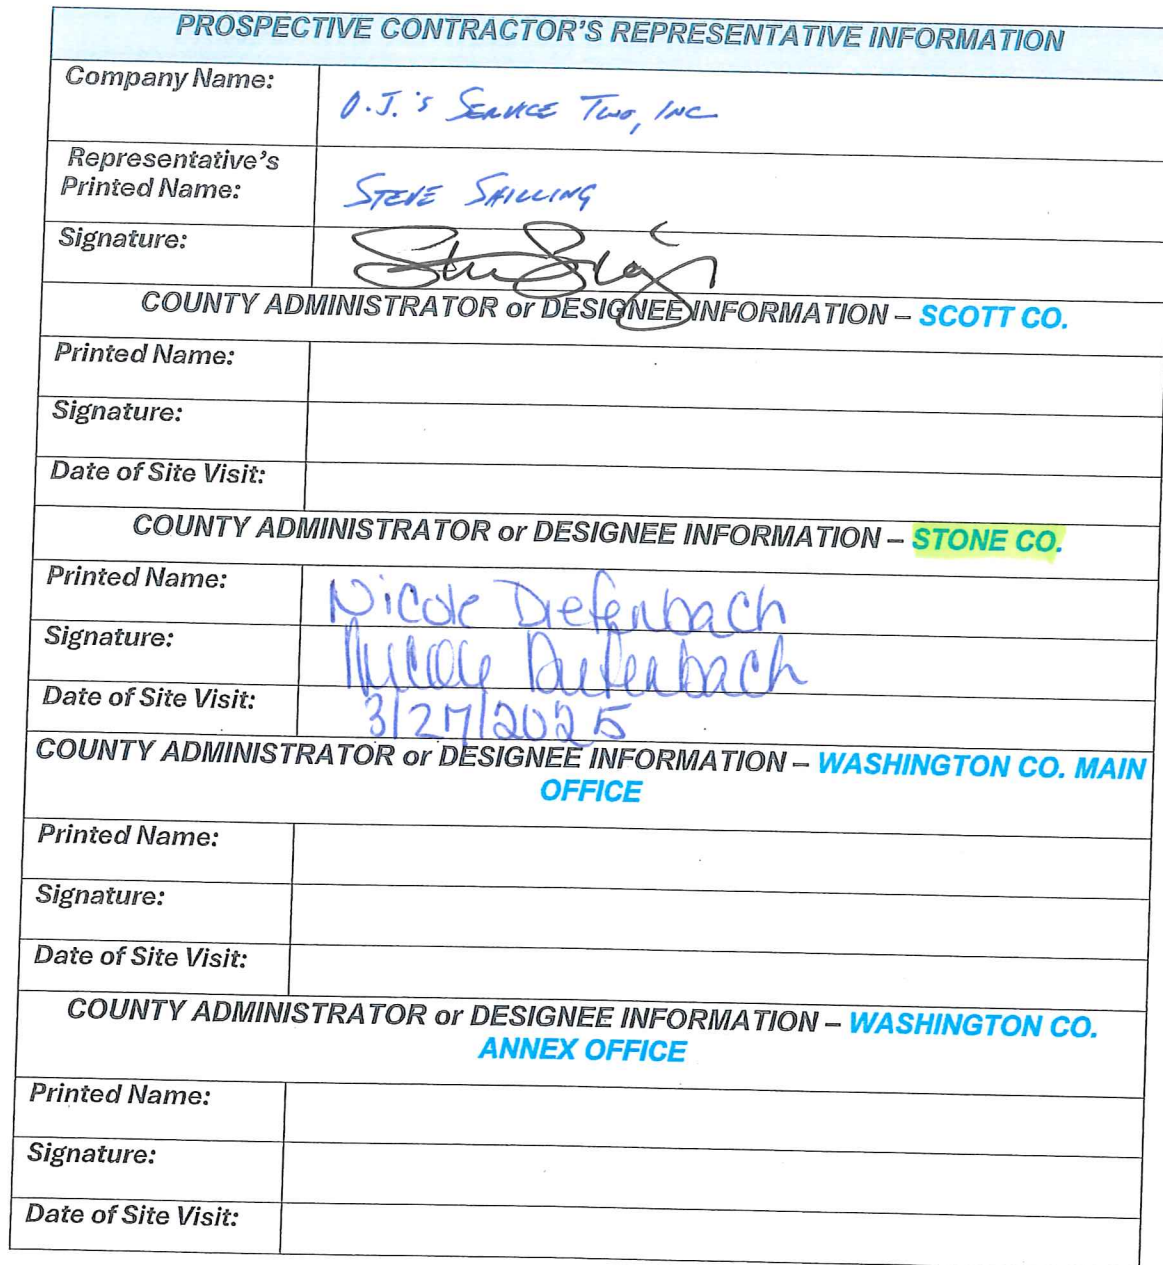 PROSPECTIVE CONTRACTOR'S REPRESENTATIVE INFORMATION
Company Name:
O.J.'s SERVICE TWO, INC
Representative's
Printed Name:
STEVE SHILLING
Signature:
COUNTY ADMINISTRATOR or DESIGNEE INFORMATION – SCOTT CO.
Printed Name:
Signature:
Date of Site Visit:
COUNTY ADMINISTRATOR or DESIGNEE INFORMATION – STONE CO.
Printed Name:
Nicole Diefenbach
Signature:
Nicole Diefenbach
Date of Site Visit:
3/27/2025
COUNTY ADMINISTRATOR or DESIGNEE INFORMATION – WASHINGTON CO. MAIN
OFFICE
Printed Name:
Signature:
Date of Site Visit:
COUNTY ADMINISTRATOR or DESIGNEE INFORMATION – WASHINGTON CO.
ANNEX OFFICE
Printed Name:
Signature:
Date of Site Visit: